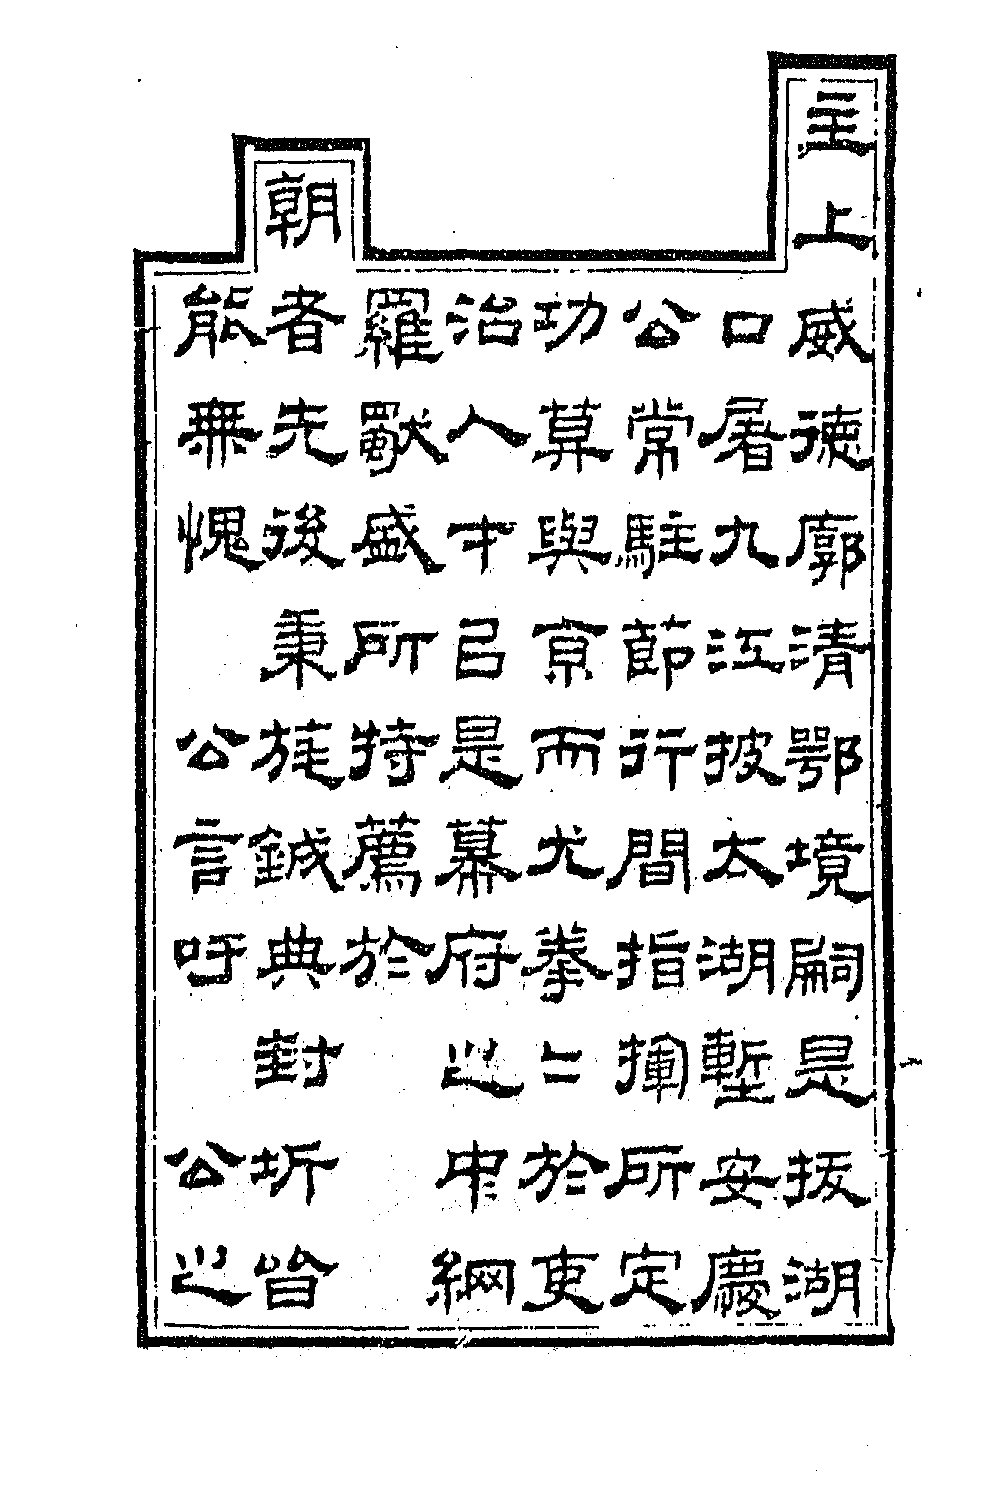 主上威德廓清鄂境嗣是拔湖
口屠九江披太湖塹安慶
公常駐節行間指揮所定
功算與京而尤拳二於吏
治人才自是幕府之中網
羅猷盛所特薦於
朝者先後秉旄鉞典封圻皆
能無愧公言吁公之